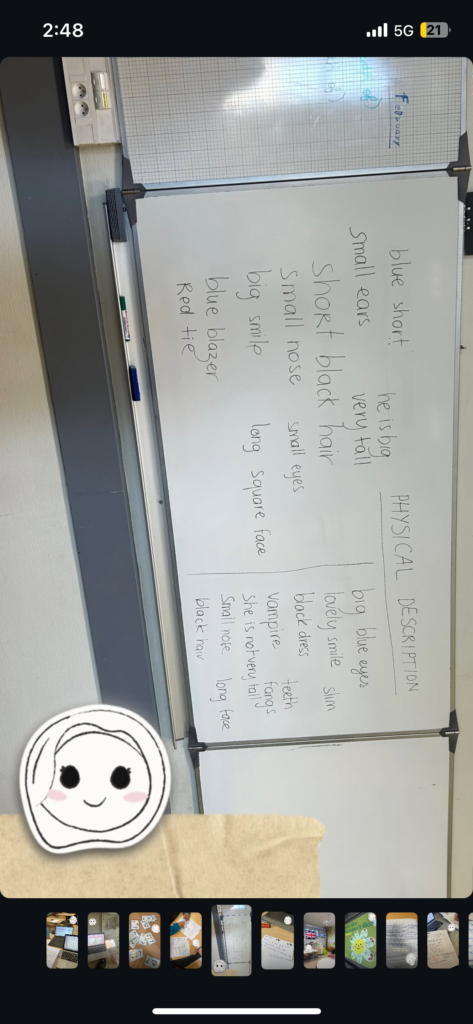 2:48
5G 21
February
PHYSICAL DESCRIPTION
blue short he is big
small ears very tall
Short black hair
small nose small eyes
big smile long square face
blue blazer
Red tie
big blue eyes
lovely smile slim
black dress
vampire teeth
fangs
She is not very tall
small nose long face
black hair